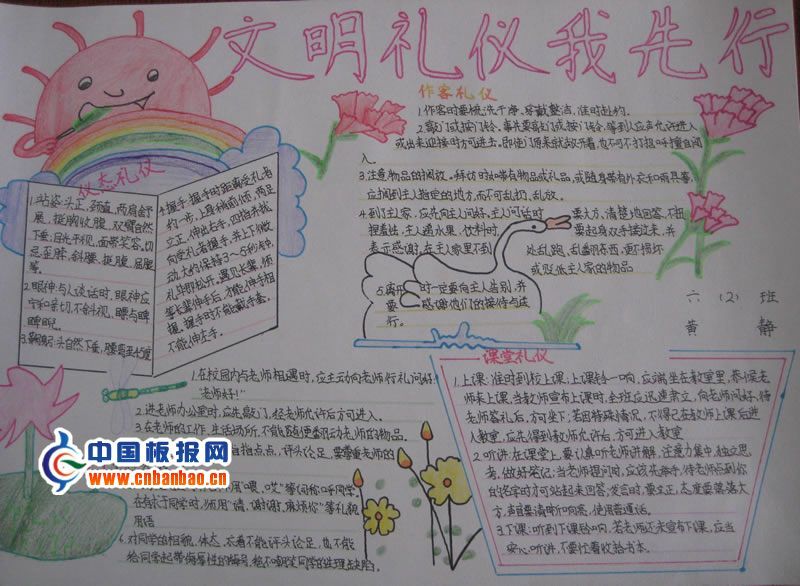 文明礼仪我先行
作客礼仪
1.作客时要梳洗干净,穿戴整洁,准时赴约。
2.敲门或按门铃。事先要敲门或按门铃,等到人应声允许进入
或出来迎接时方可进去。即使门原来就敞开着,也不可不打招呼擅自闯
入。
3.注意物品的搁放。拜访时如带有物品或礼品,或随身带有外衣和雨具等,
应搁到主人指定的地方,而不可乱扔、乱放。
4.到了主家,应先向主人问好,主人问话时
要大方,清楚地回答,不扭
捏羞怯,主人递水果、饮料时
要起身双手接过来,并
表示感谢,在主人家里不到
处乱跑、乱翻东西,更不损坏
或贬低主人家的物品
5.离开
时一定要向主人告别,并
要
感谢他们的接待与送
行。
六(2)班
黄静
仪态礼仪
1.站姿:头正,颈直,两肩舒
展,挺胸收腹,双臂自然
下垂;目光平视,面带笑容。切
忌歪脖、斜腰、挺腹、屈腿
等。
2.眼神:与人谈话时,眼神应
宁和亲切,不斜视、
3.鞠躬:头自然下垂,
4.握手:握手时距离受礼者
约一步,上身稍前倾,两足
立正,伸出右手,四指并拢
向受礼者握手,并上下微
动,大约保持3~5秒钟,
礼毕即松开。遇见长辈,须
等长辈伸手后,才能伸手相
握。握手时不能戴手套。
不能伸左手。
1.在校园内与老师相遇时,应主动向老师行礼问好:
“老师好!”
2.进老师办公室时,应先敲门,经老师允许后方可进入。
3.在老师的工作、生活场所,不能随便翻动老师的物品。
指指点点,评头论足,要尊重老师的
用“喂,哎”等词称呼同学。
在有求于同学时,须用“请、谢谢、麻烦你”等礼貌
用语
6.对同学的相貌、体态、衣着不能评头论足,也不能
给同学起带侮辱性的绰号,绝不嘲笑同学的生理缺陷。
课堂礼仪
1.上课:准时到校上课;上课铃一响,应端坐在教室里,恭候老
师来上课,当教师宣布上课时,全班应迅速肃立,向老师问好,待
老师答礼后,方可坐下;若因特殊情况,不得已在教师上课后进
入教室,应先得到教师允许后,方可进入教室
2.听讲:在课堂上,要认真听老师讲解,注意力集中,独立思
考,做好笔记;当老师提问时,应该先举手,待老师点到你
的名字时方可站起来回答;发言时,要立正,态度要落落大
方,声音要清晰响亮,使用普通话。
3.下课:听到下课铃响,若老师还未宣布下课,应当
安心听讲,不要忙着收拾书本。
中国板报网
www.cnbanbao.cn